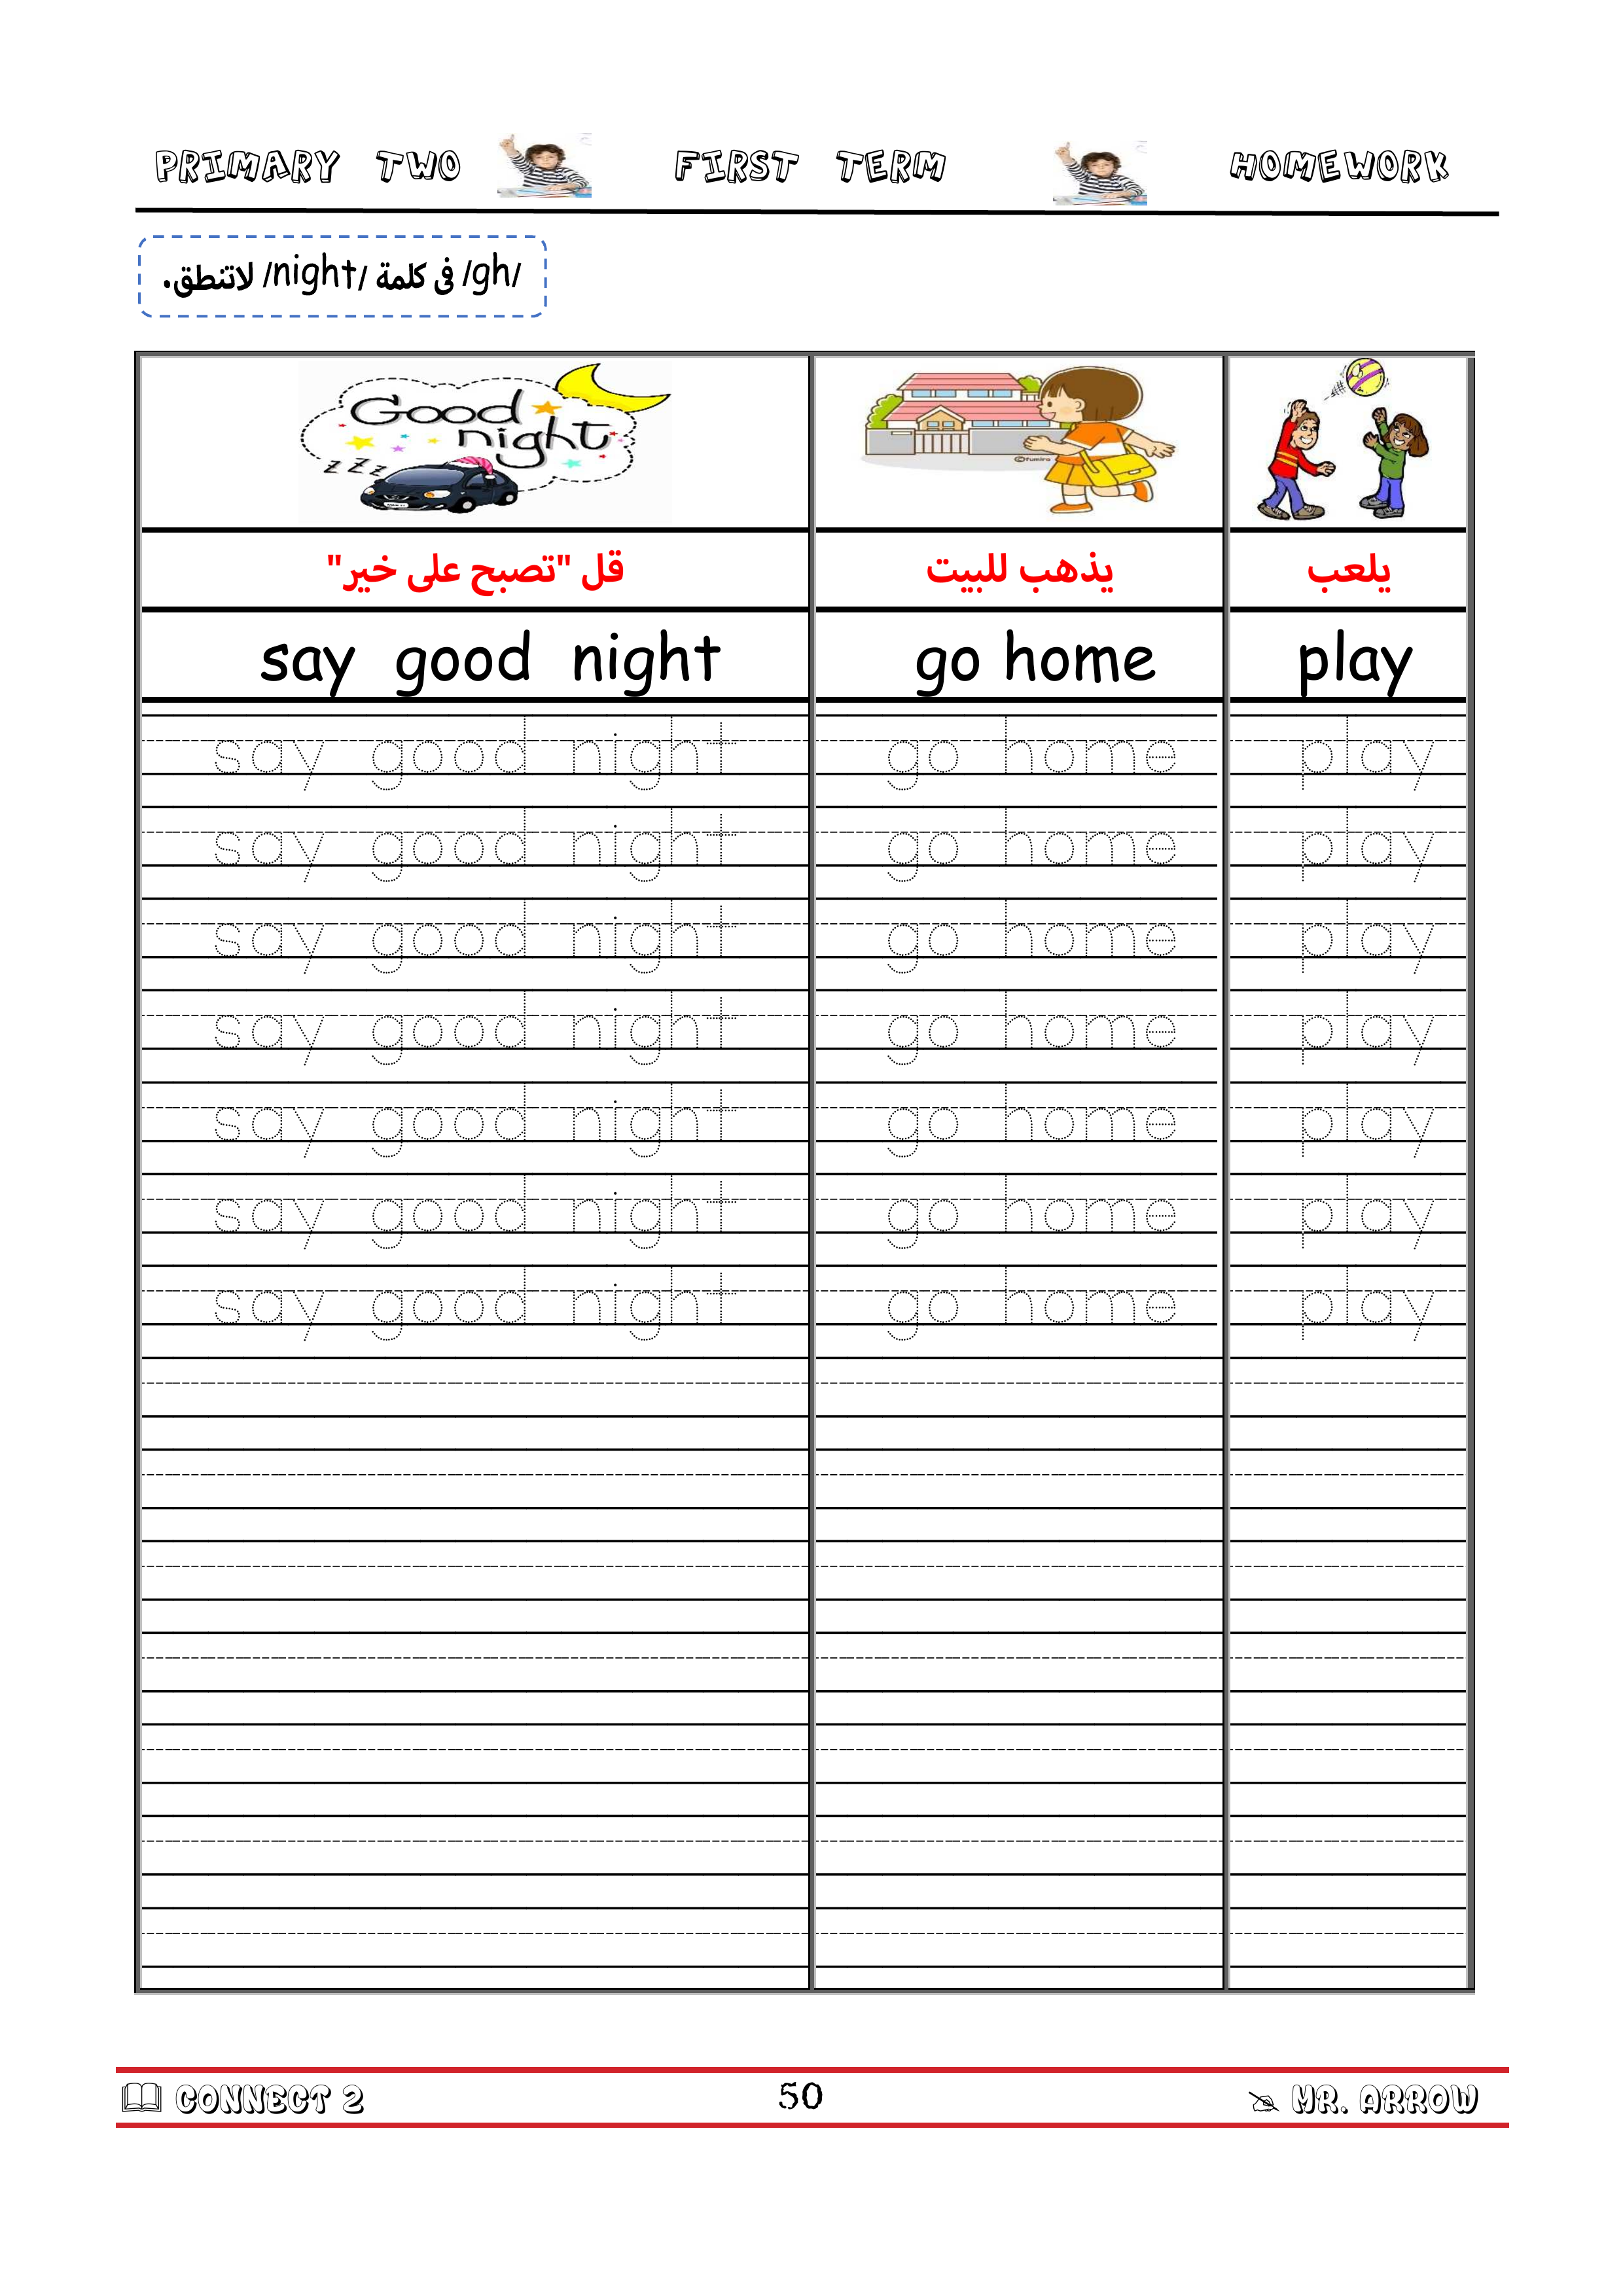 PRIMARY TWO FIRST TERM HOMEWORK
/gh/ فى كلمة /night/ لاتنطق.
Good
night
zzz
©fumira
قل "تصبح على خير" يذهب للبيت يلعب
say good night go home play
say good night go home play
say good night go home play
say good night go home play
say good night go home play
say good night go home play
say good night go home play
say good night go home play
CONNECT 2 50 MR. ARROW